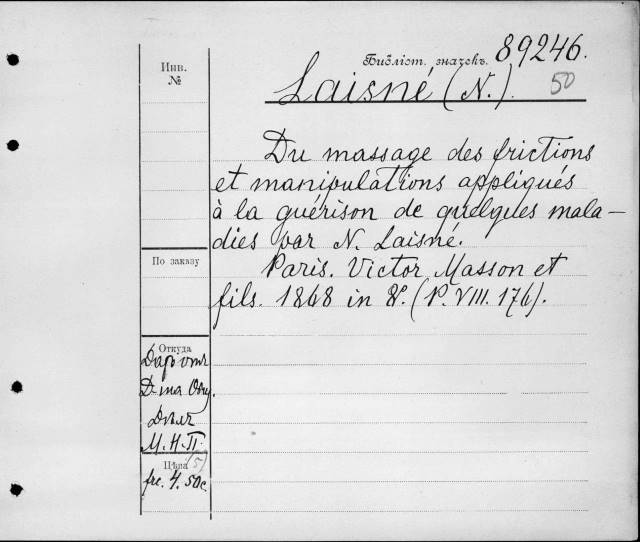 Библіот. значекъ. 89246.
Инв.
№
Laisné (N.).
50
Du massage des frictions
et manipulations appliqués
à la guérison de quelques mala-
dies par N. Laisné.
Paris. Victor Masson et
fils. 1868 in 8º. (P. VIII. 176).
По заказу
Откуда
Даръ отъ
Д-та Общ.
Дѣлъ
М.Н.П.
Цѣна
frc. 4. 50c.